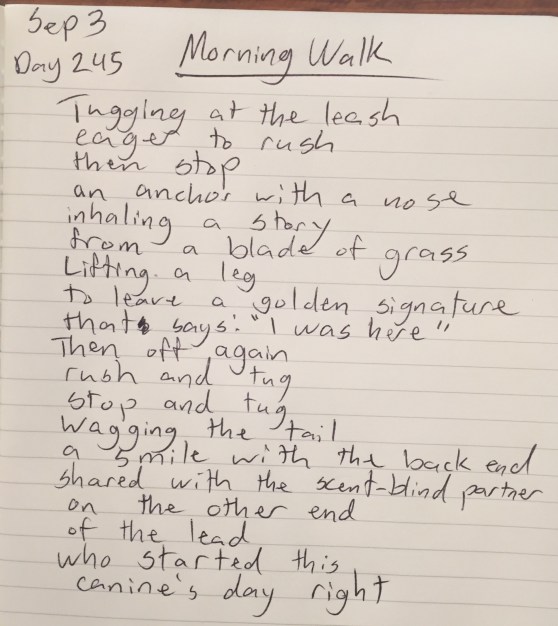 Sep 3
Day 245
Morning Walk
Tugging at the leash
eager to rush
then stop
an anchor with a nose
inhaling a story
from a blade of grass
Lifting a leg
to leave a golden signature
that says: "I was here"
Then off again
rush and tug
stop and tug
Wagging the tail
a smile with the back end
shared with the scent-blind partner
on the other end
of the lead
who started this
canine's day right